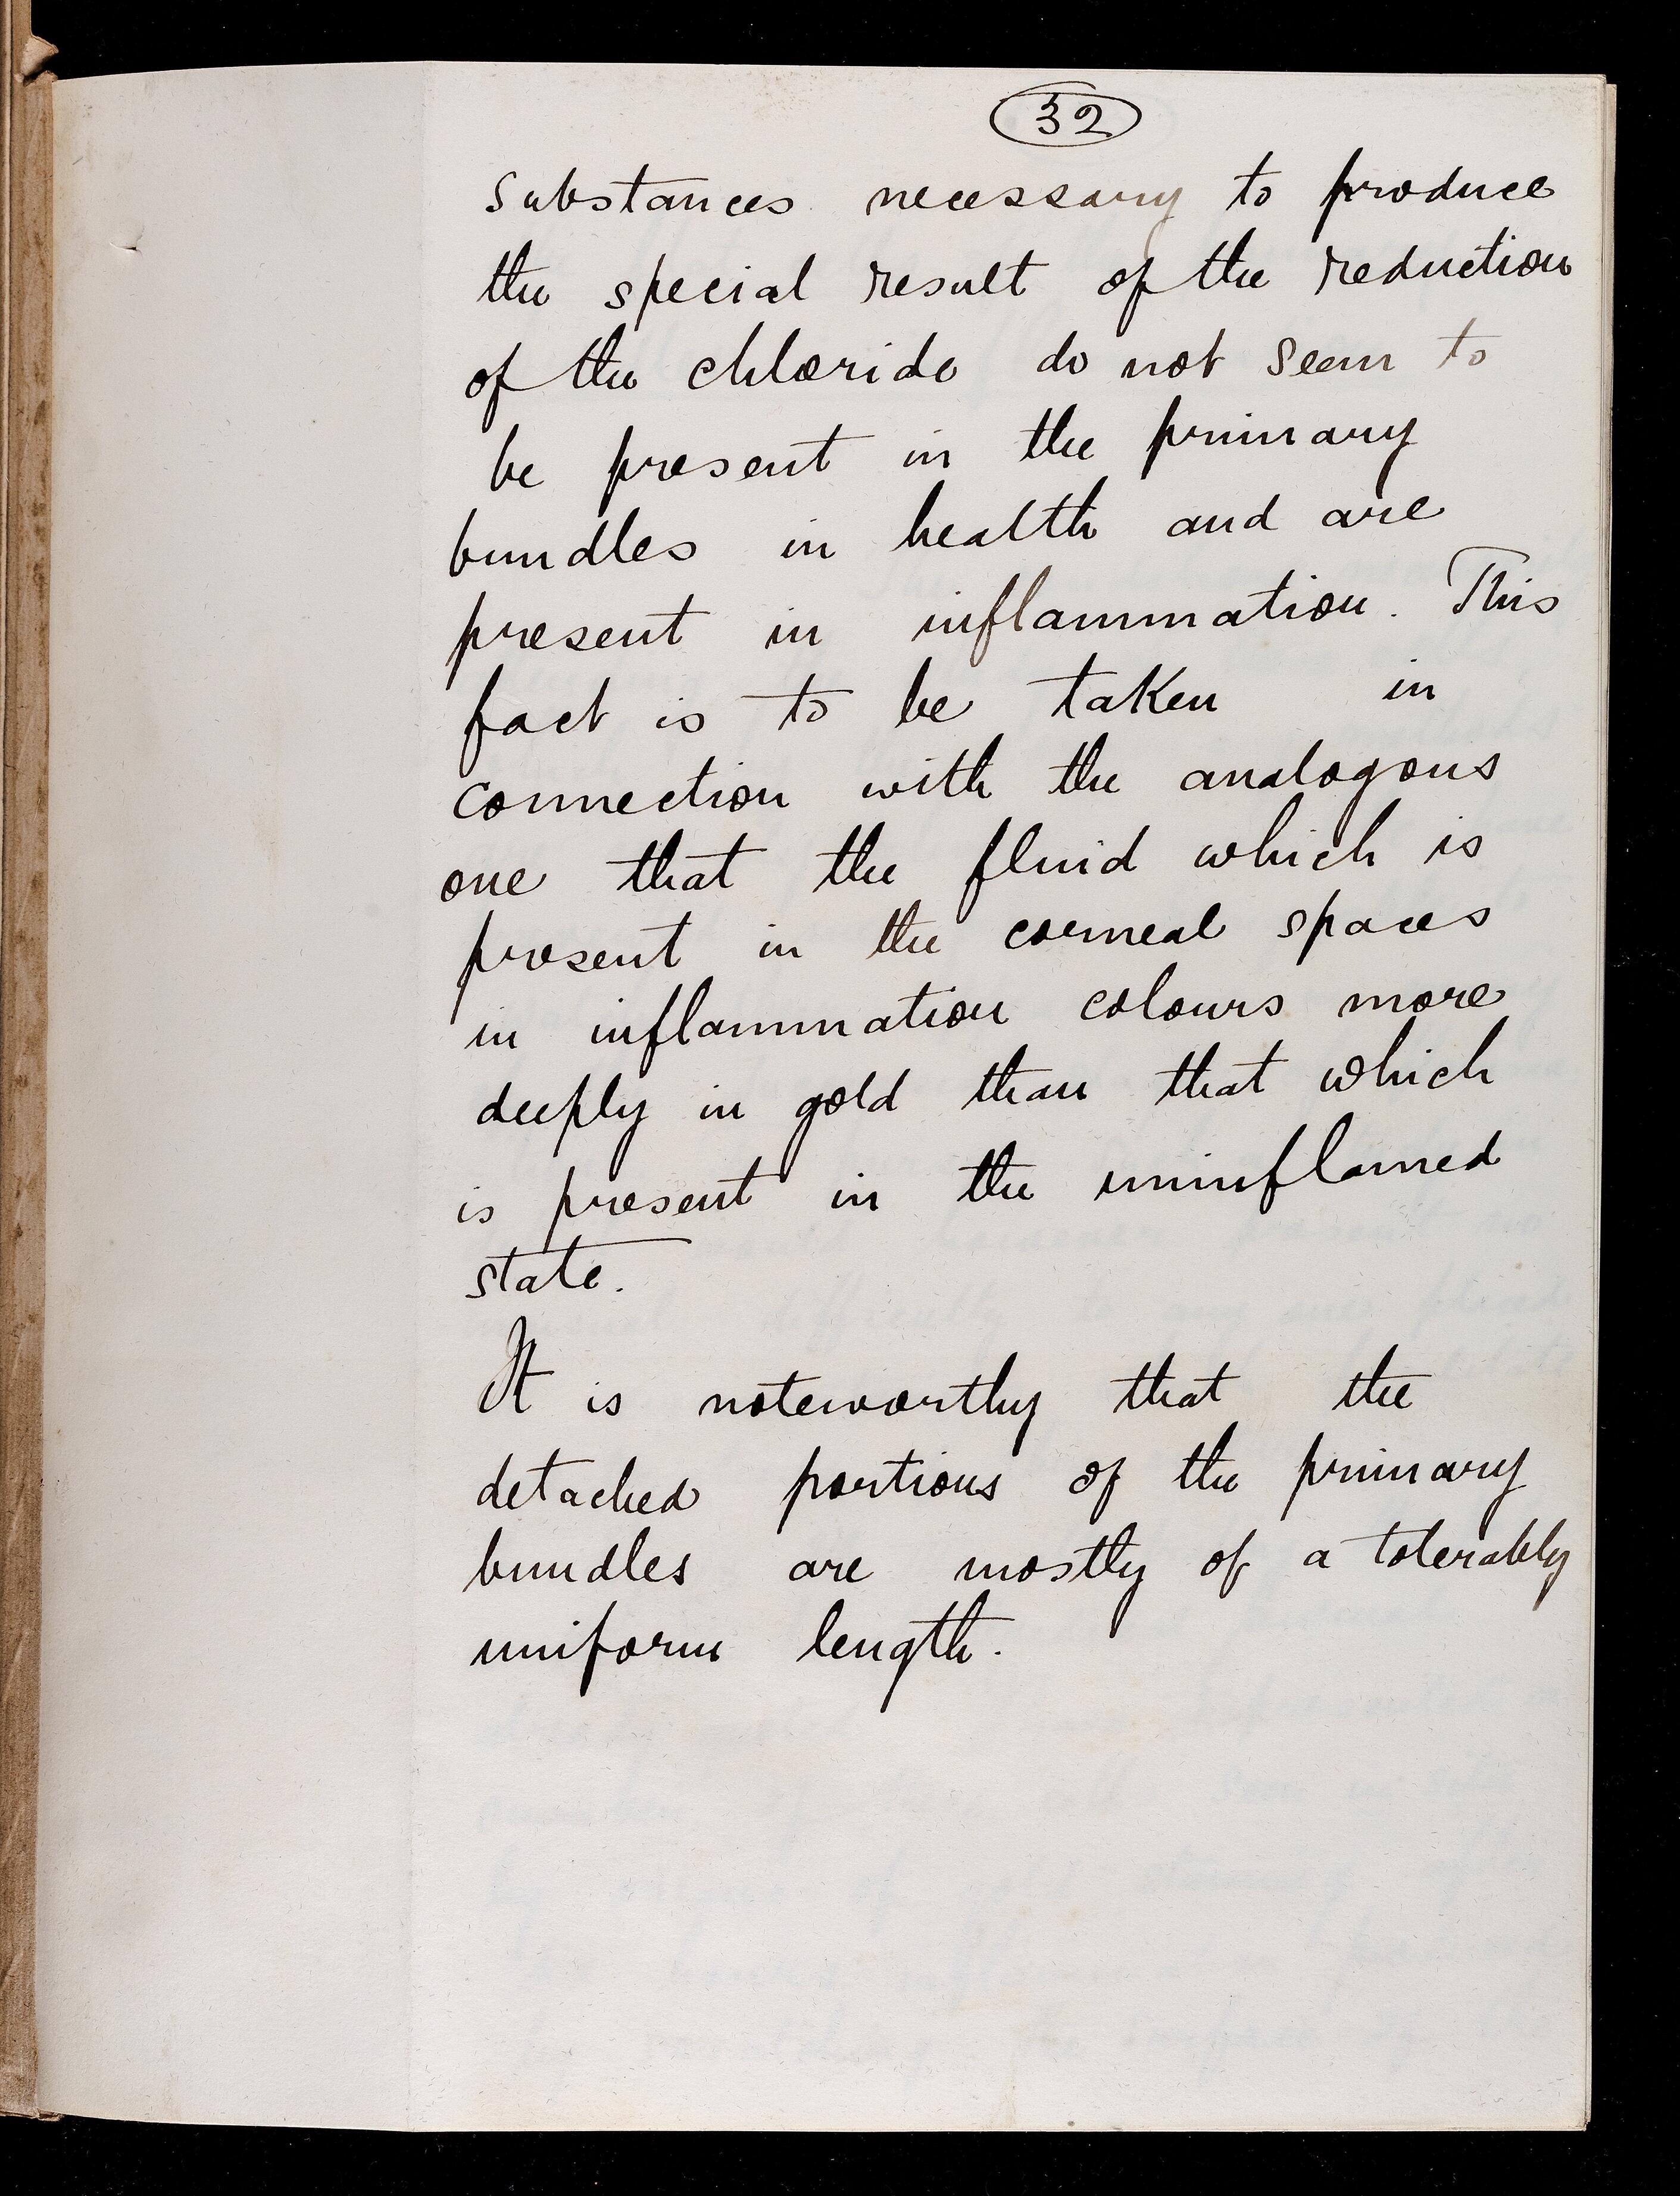 32
substances necessary to produce
the special result of the reduction
of the chloride do not seem to
be present in the primary
bundles in health and are
present in inflammation. This
fact is to be taken in
connection with the analogous
one that the fluid which is
present in the corneal spaces
in inflammation colours more
deeply in gold than that which
is present in the uninflamed
state.
It is noteworthy that the
detached portions of the primary
bundles are mostly of a tolerably
uniform length.